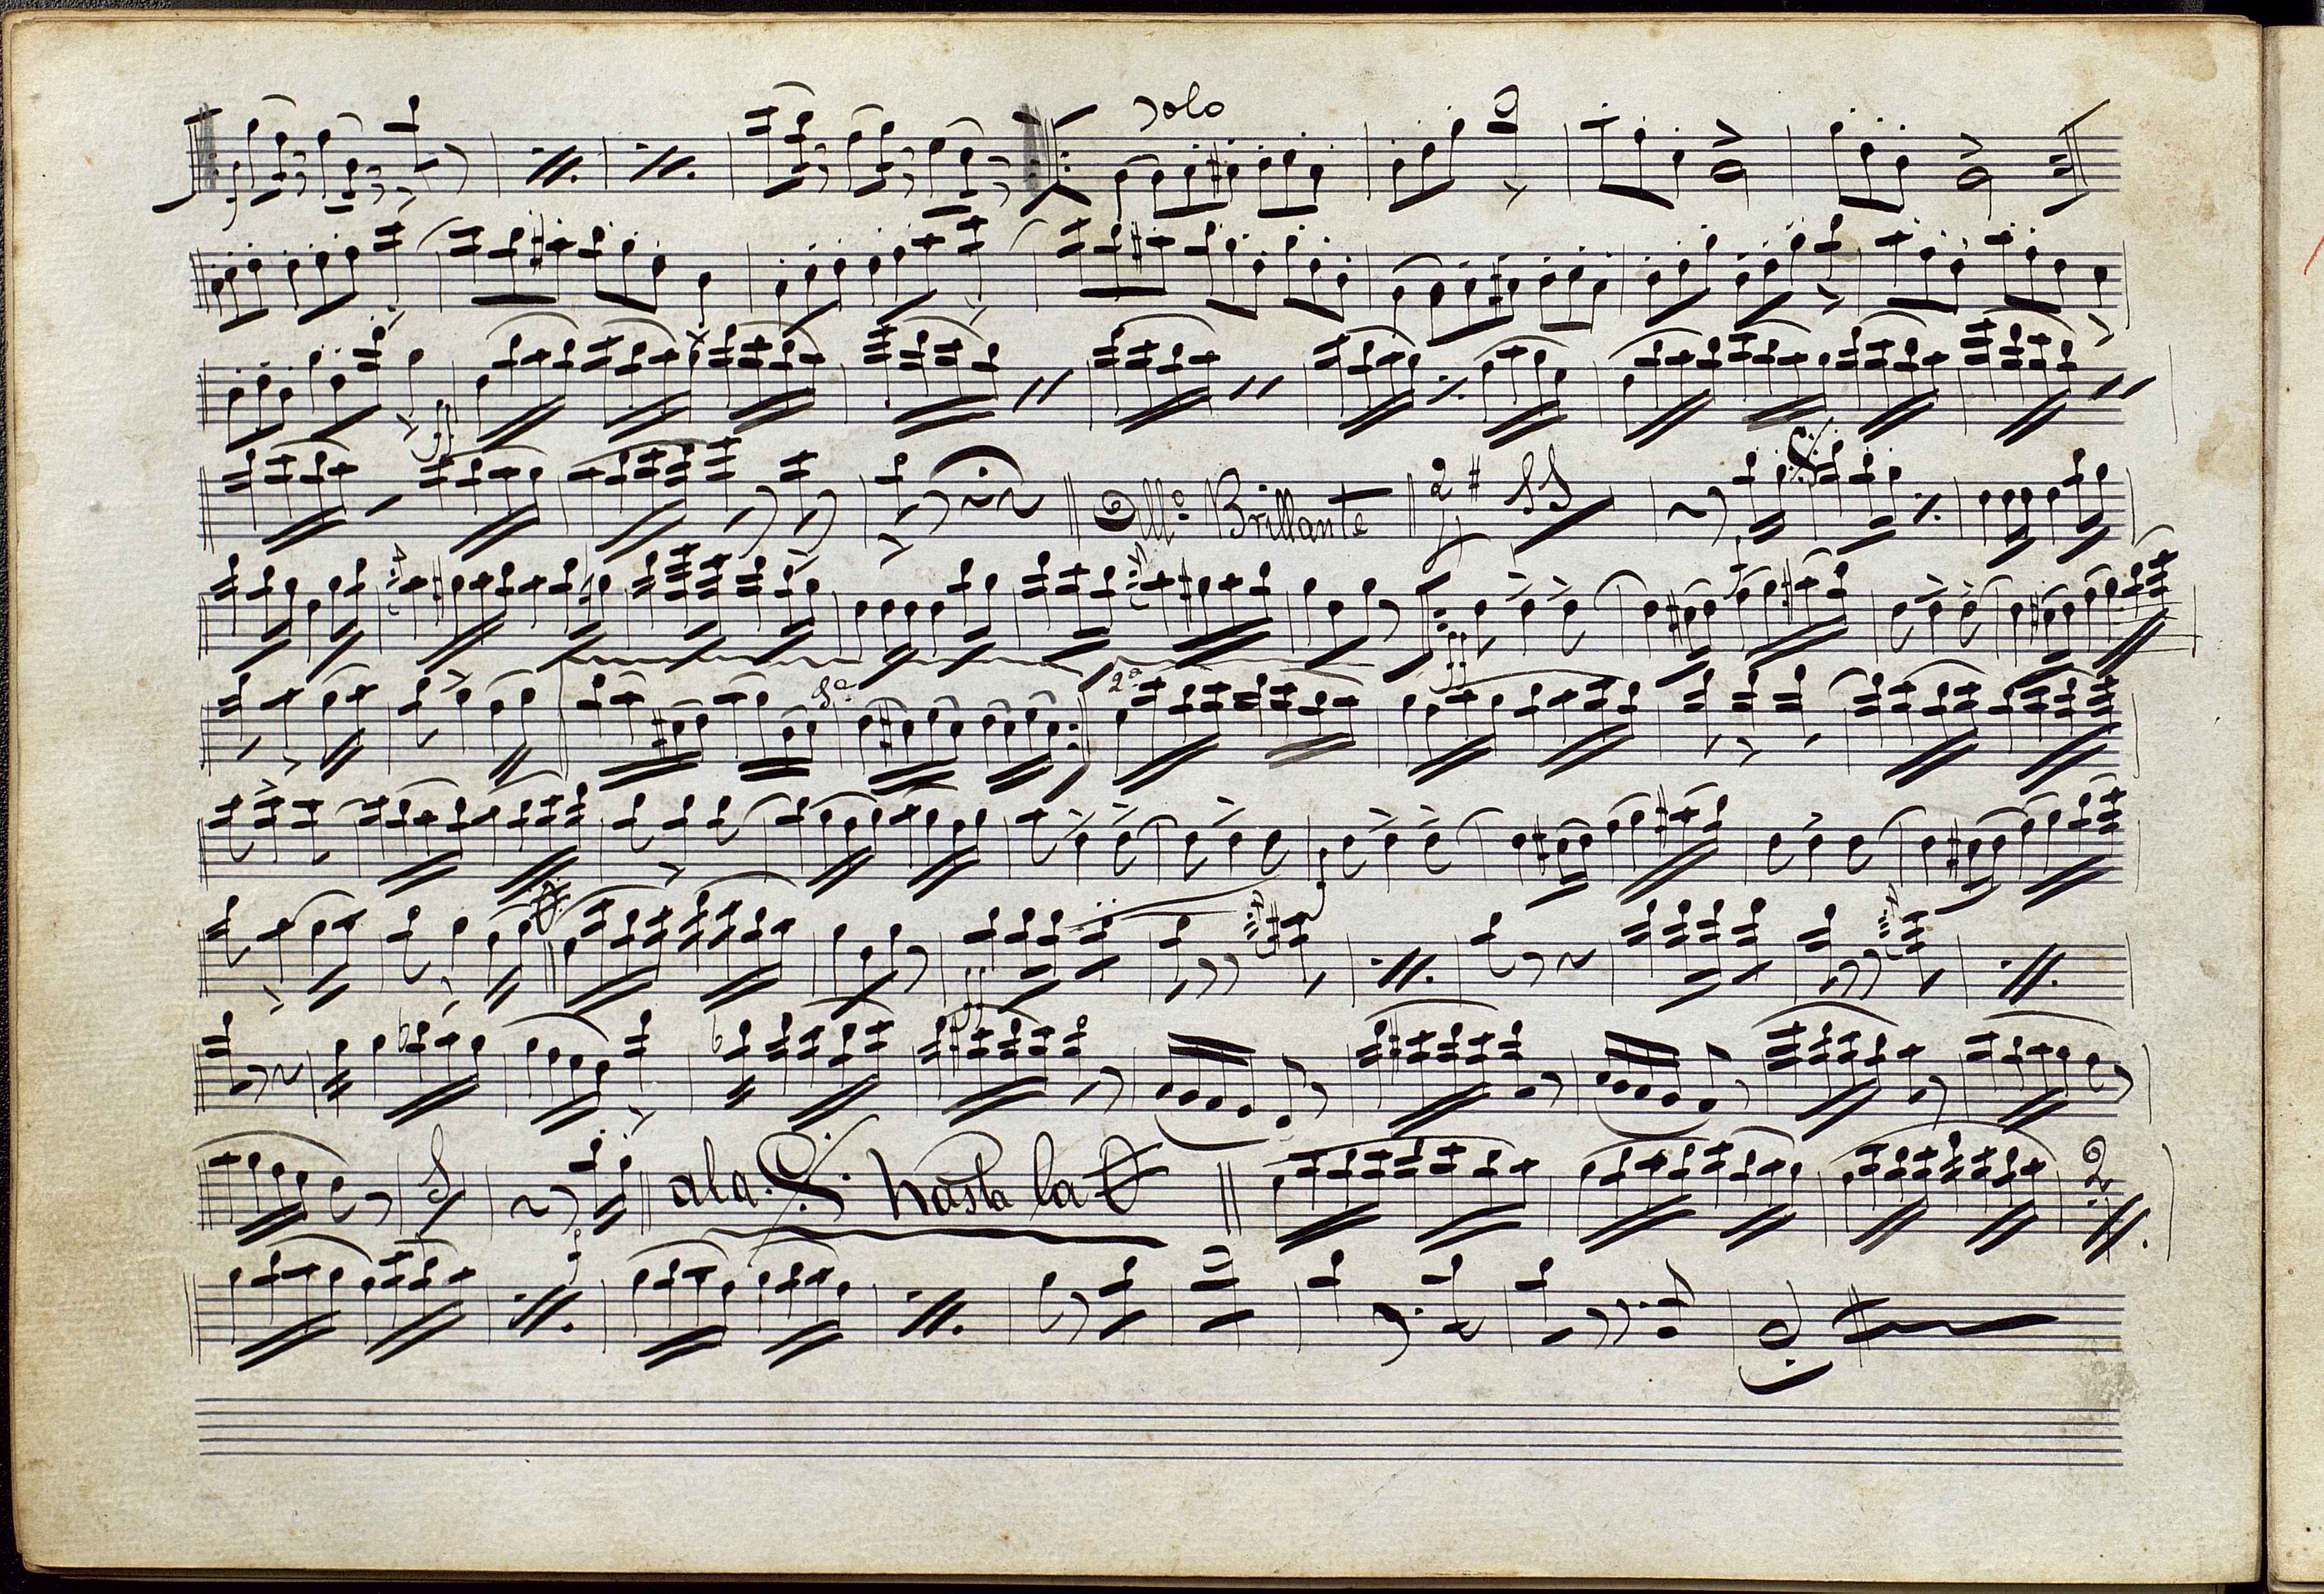 Solo
All.º Brillante 2/4
1ª 2ª
a la 𝄋 hasta la 𝄌
2